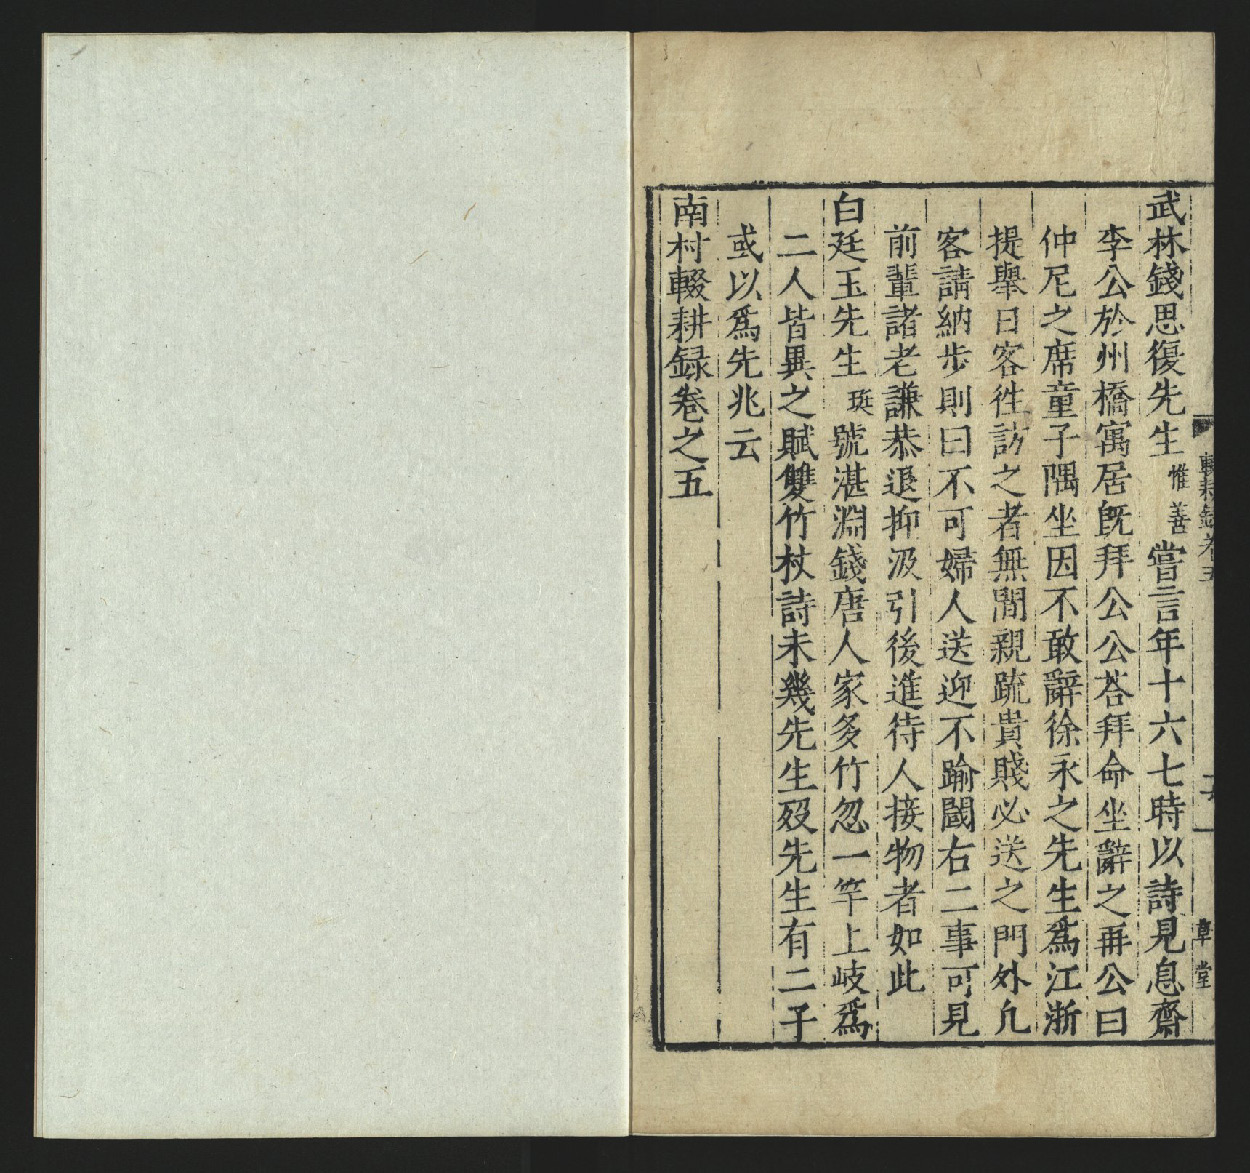 武林錢思復先生惟善嘗言年十六七時以詩見息齋
李公於州橋寓居旣拜公公荅拜命坐辭之再公曰
仲尼之席童子隅坐因不敢辭徐永之先生爲江浙
提舉日客徃訪之者無間親疏貴賤必送之門外凡
客請納步則曰不可婦人送迎不踰閾右二事可見
前輩諸老謙恭退抑汲引後進待人接物者如此
白廷玉先生珽號湛淵錢唐人家多竹忽一竿上岐爲
二人皆異之賦雙竹杖詩未幾先生歿先生有二子
或以爲先兆云
南村輟耕録卷之五